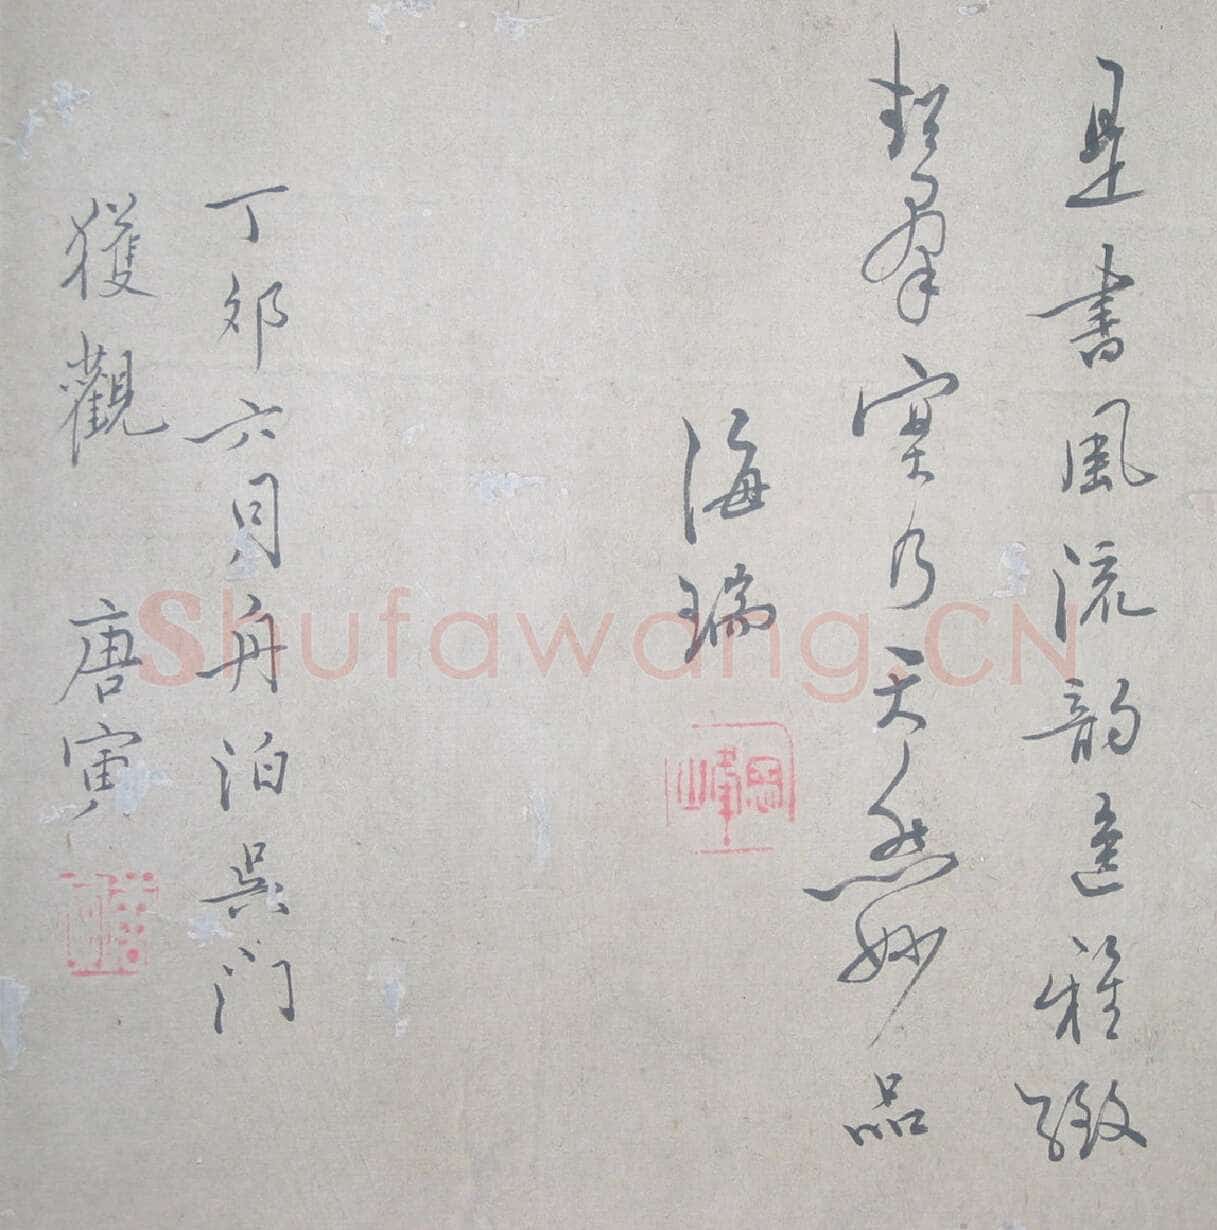 是書風流韵遠雅緻
超羣實乃天然妙品
海瑞
丁卯六月舟泊吳门
獲觀 唐寅
Shufawang.CN